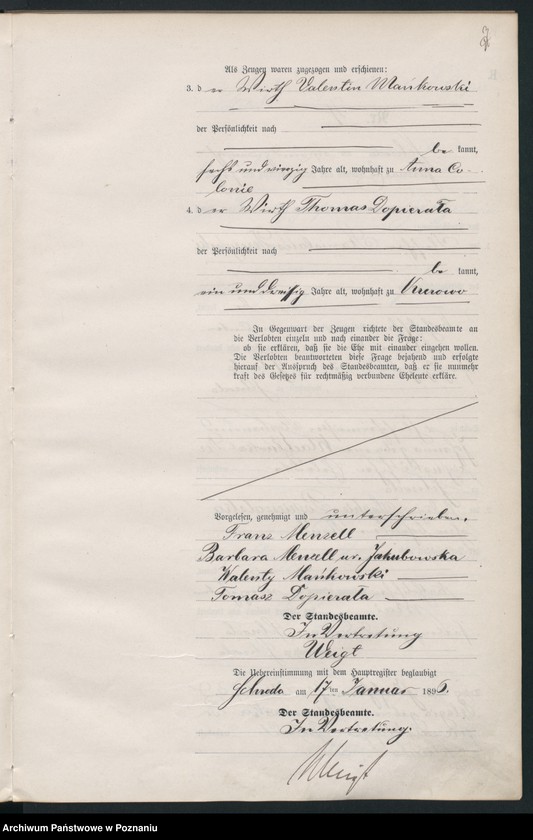 Als Zeugen waren zugezogen und erschienen:
3. der Wirth Valentin Mańkowski
der Persönlichkeit nach
be kannt,
sechs und vierzig Jahre alt, wohnhaft zu Anna Co-
lonie
4. der Wirth Thomas Dopierała
der Persönlichkeit nach
be kannt,
ein und dreißig Jahre alt, wohnhaft zu
In Gegenwart der Zeugen richtete der Standesbeamte an
die Verlobten einzeln und nach einander die Frage:
ob sie erklären, daß sie die Ehe mit einander eingehen wollen.
Die Verlobten beantworteten diese Frage bejahend und erfolgte
hierauf der Ausspruch des Standesbeamten, daß er sie nunmehr
kraft des Gesetzes für rechtmäßig verbundene Eheleute erkläre.
Vorgelesen, genehmigt und unterschrieben.
Franz Menzell
Barbara Menzell ur. Jakubowska
Walenty Mańkowski
Tomasz Dopierała
Der Standesbeamte.
In Vertretung
Weigt
Die Uebereinstimmung mit dem Hauptregister beglaubigt
Schroda am 17ten Januar 1896.
Der Standesbeamte.
In Vertretung.
Weigt
Archiwum Państwowe w Poznaniu